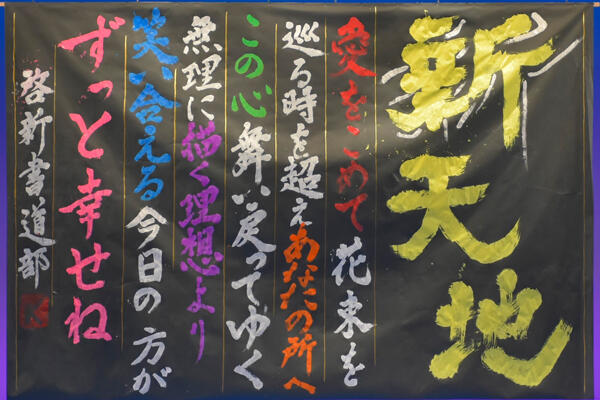 新天地
愛をこめて花束を
巡る時を超えあなたの所へ
この心舞い戻ってゆく
無理に描く理想より
笑い合える今日の方が
ずっと幸せね
啓新書道部